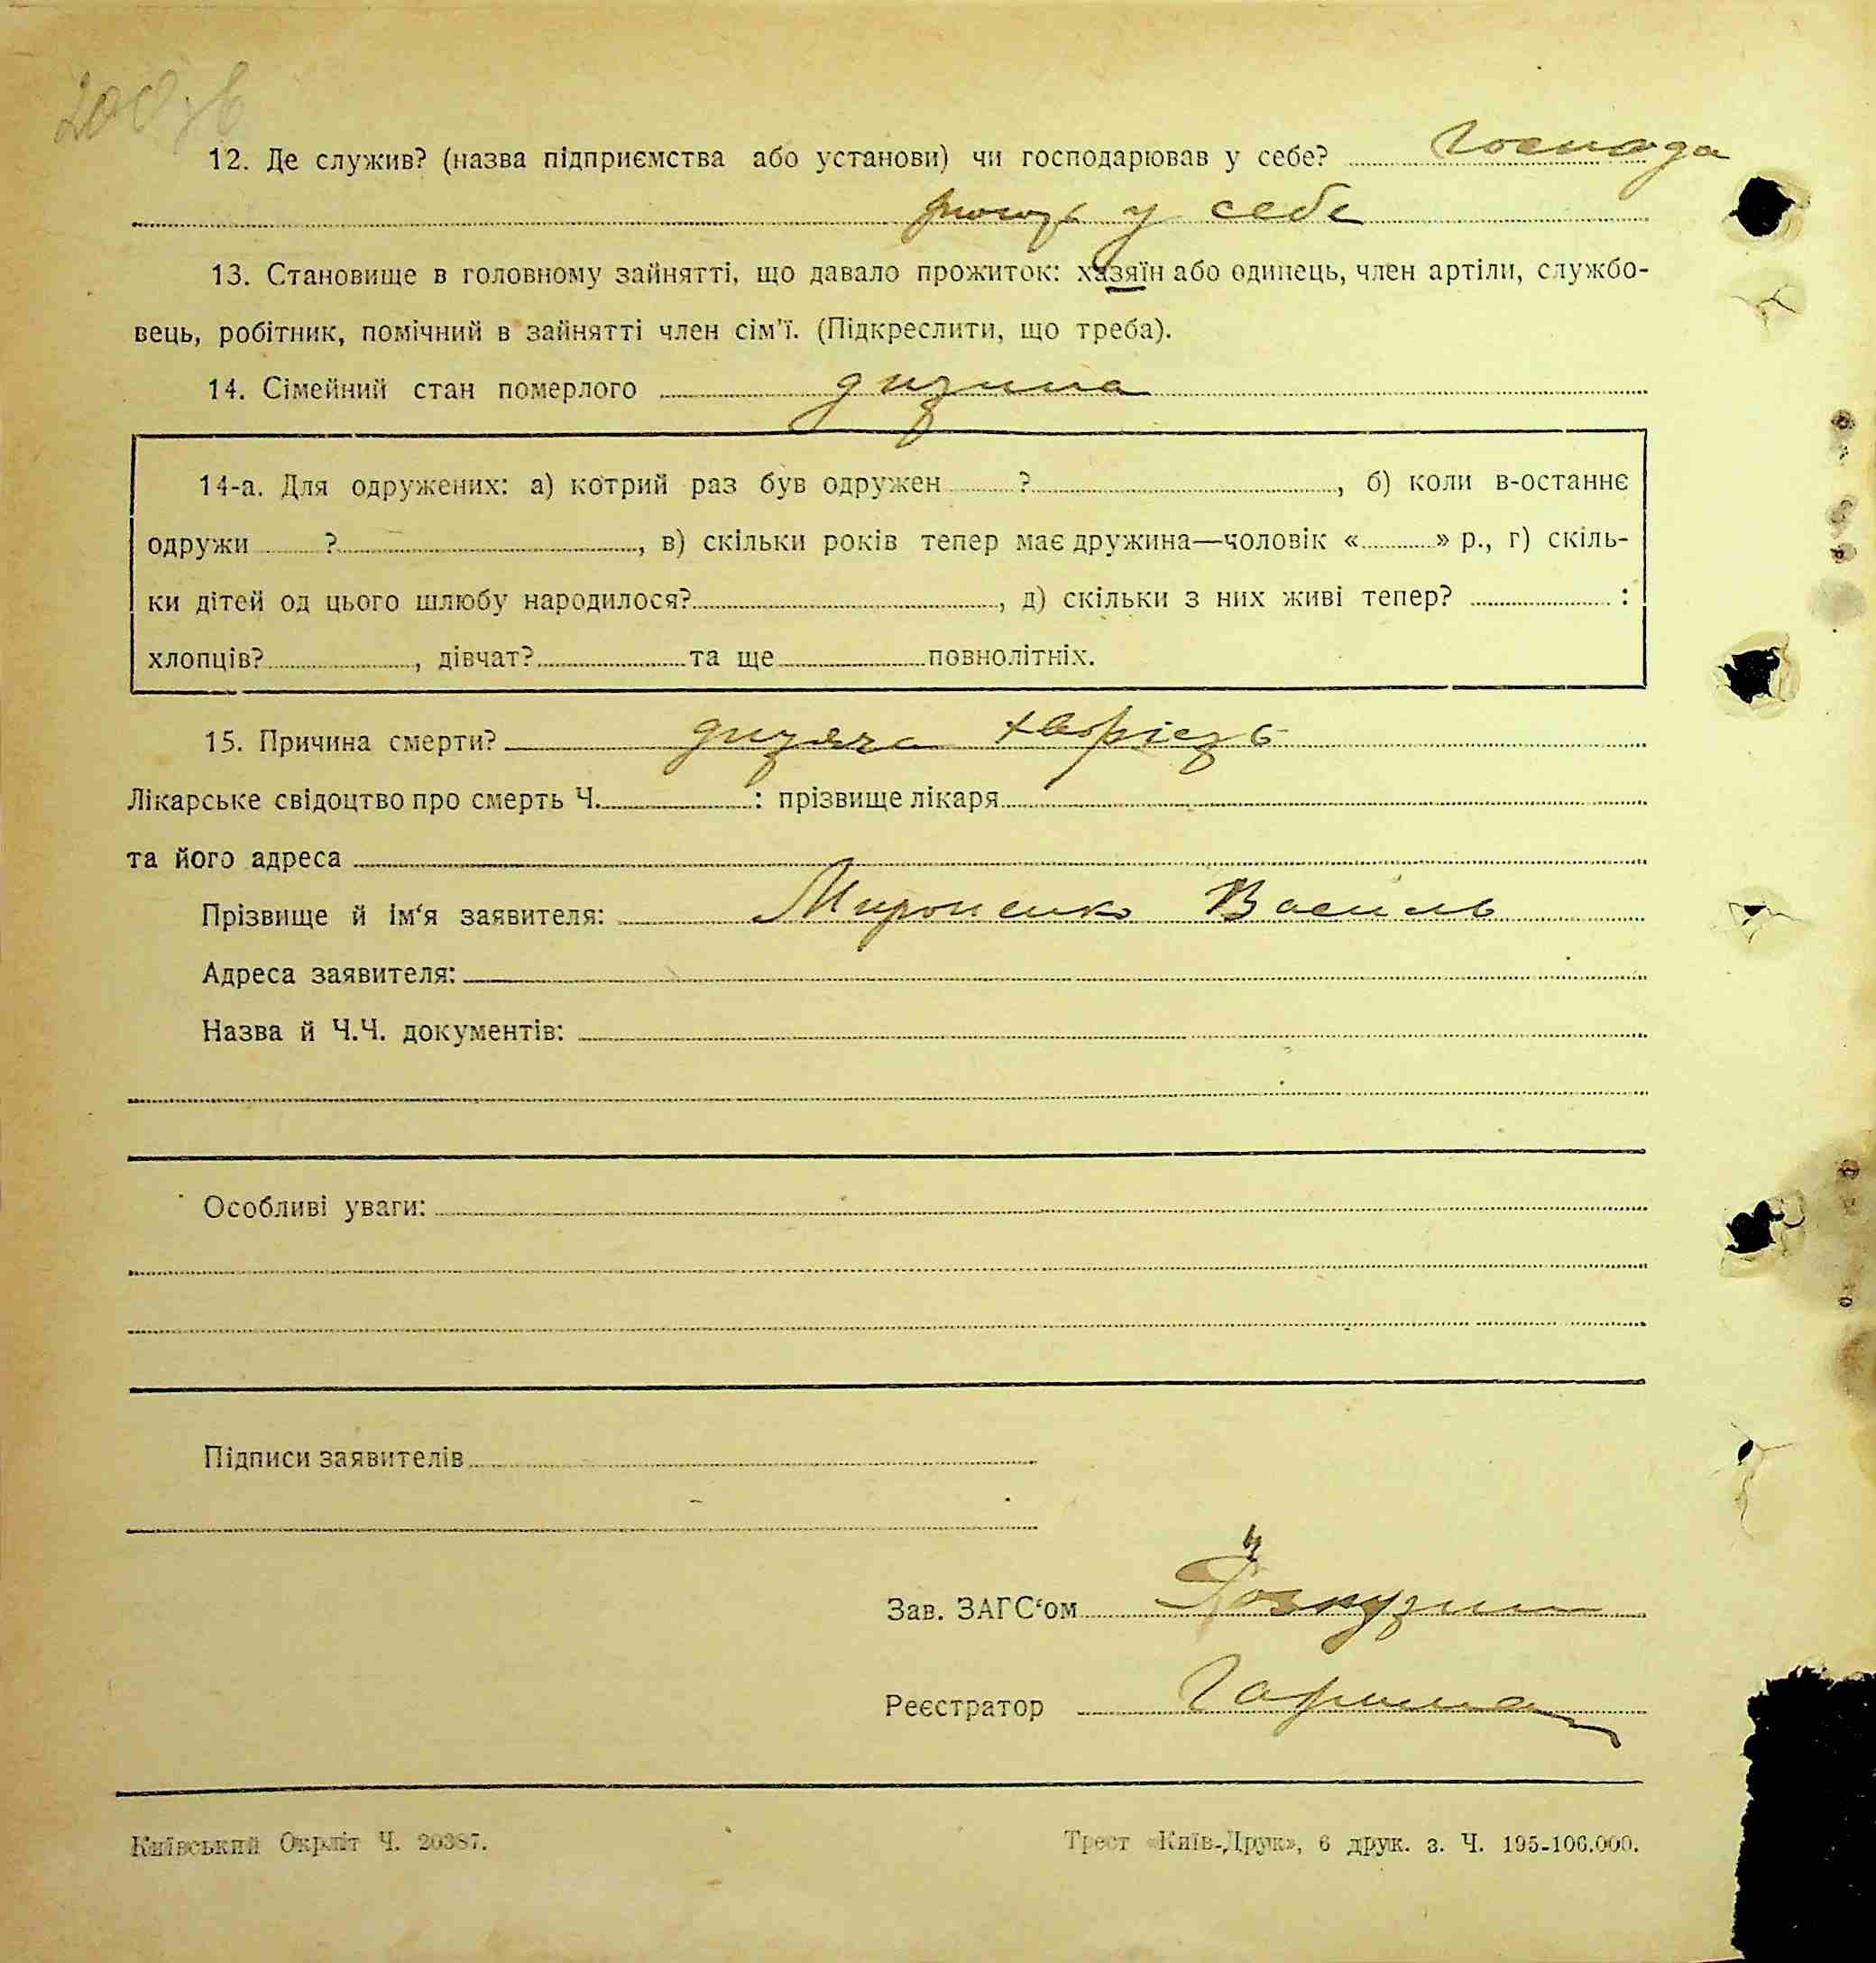 12. Де служив? (назва підприємства або установи) чи господарював у себе? Господа
рють у себе
13. Становище в головному зайнятті, що давало прожиток: хазяїн або одинець, член артіли, службо-
вець, робітник, помічний в зайнятті член сім'ї. (Підкреслити, що треба).
14. Сімейний стан померлого дитина
14-а. Для одружених: а) котрий раз був одружен ? , б) коли в-останнє
одружи ? , в) скільки років тепер має дружина—чоловік « » р., г) скіль-
ки дітей од цього шлюбу народилося? , д) скільки з них живі тепер? :
хлопців? , дівчат? та ще повнолітніх.
15. Причина смерти? дитяча хворість
Лікарське свідоцтво про смерть Ч. : прізвище лікаря
та його адреса
Прізвище й ім'я заявителя: Мироненко Василь
Адреса заявителя:
Назва й Ч.Ч. документів:
Особливі уваги:
Підписи заявителів
Зав. ЗАГС'ом
Реєстратор
Київський Окрліт Ч. 20387.
Трест «Київ-Друк», 6 друк. з. Ч. 195-106.000.